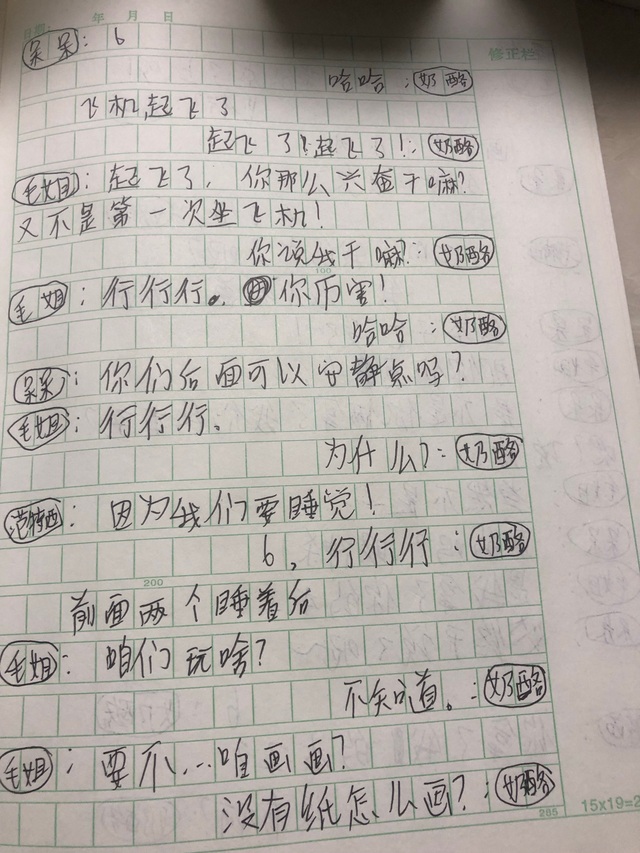 日期: 年 月 日
呆呆: 6
修正栏
哈哈 :奶酪
飞机起飞了
起飞了!起飞了!:奶酪
毛姐: 起飞了,你那么兴奋干嘛?
又不是第一次坐飞机!
你说我干嘛?:奶酪
100
毛姐: 行行行。你厉害!
哈哈 :奶酪
呆呆: 你们后面可以安静点吗?
毛姐: 行行行。
为什么?:奶酪
范特西: 因为我们要睡觉!
6,行行行 :奶酪
200
前面两个睡着后
毛姐: 咱们玩啥?
不知道。:奶酪
毛姐: 要不...咱画画?
没有纸怎么画?:奶酪
285
15x19=2